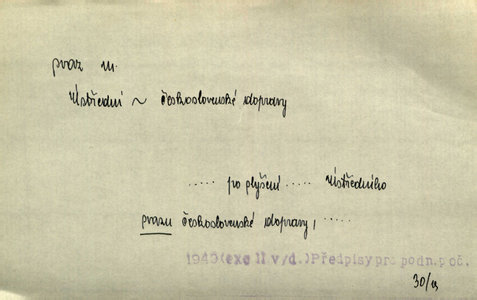 svaz m.
Ústřední ~ československé dopravy
..... po slyšení ..... Ústředního
svazu československé dopravy, .....
1940(exc II v/d.)Předpisy pro podn.poč.
30/